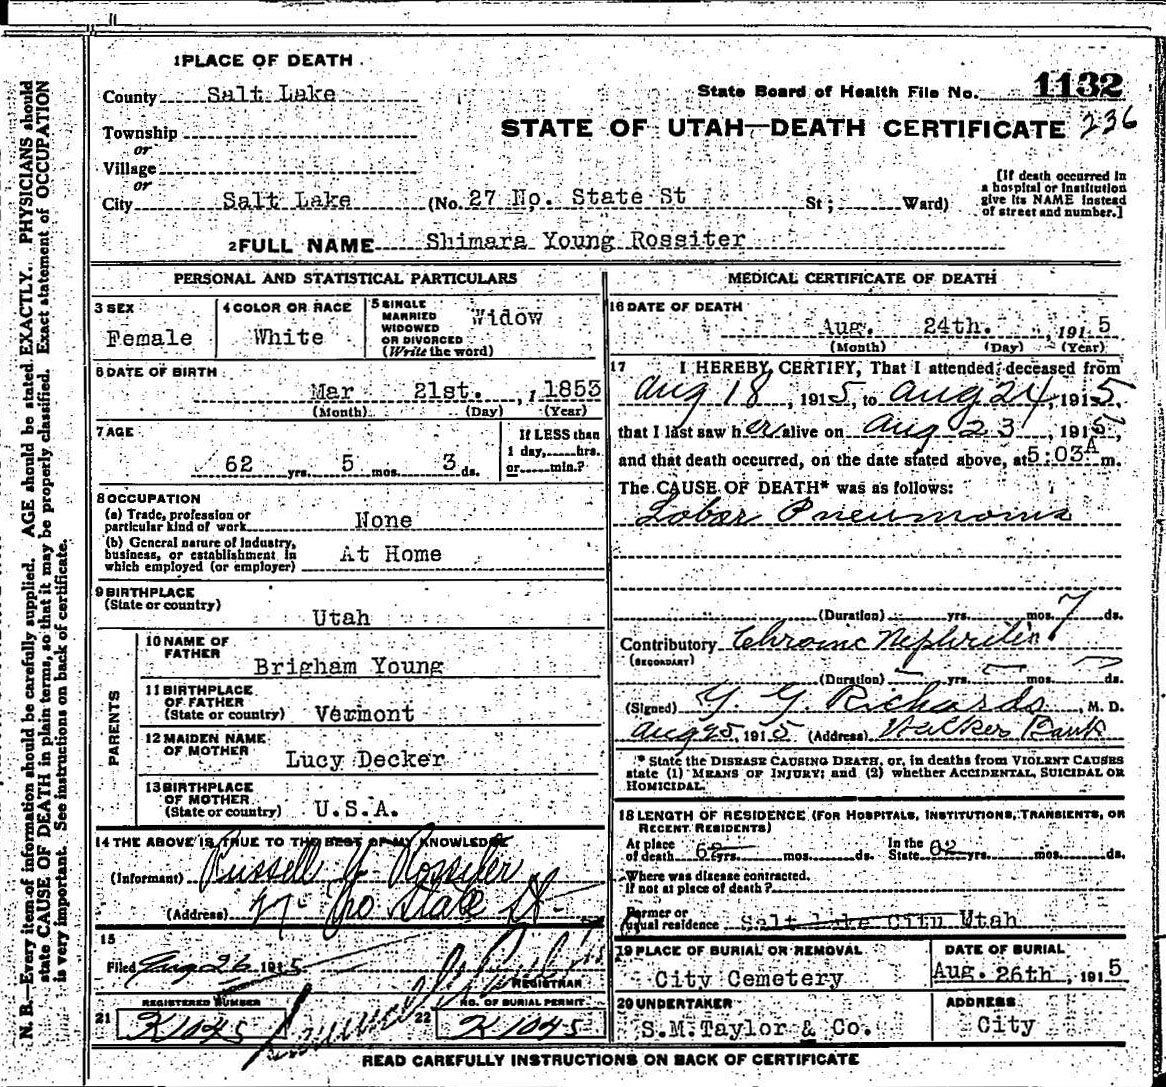 1 PLACE OF DEATH
County Salt Lake
State Board of Health File No. 1132
Township
STATE OF UTAH—DEATH CERTIFICATE 236
or
Village
or
City Salt Lake (No. 27 No. State St St; Ward)
[If death occurred in
a hospital or institution
give its NAME instead
of street and number.]
2 FULL NAME Shimara Young Rossiter
PERSONAL AND STATISTICAL PARTICULARS
3 SEX
Female
4 COLOR OR RACE
White
5 SINGLE
MARRIED
WIDOWED
OR DIVORCED
(Write the word)
Widow
6 DATE OF BIRTH
Mar 21st. , 1853
(Month) (Day) (Year)
7 AGE
62 yrs. 5 mos. 3 ds.
If LESS than
1 day, hrs.
or min.?
8 OCCUPATION
(a) Trade, profession or
particular kind of work None
(b) General nature of industry,
business, or establishment in
which employed (or employer) At Home
9 BIRTHPLACE
(State or country)
Utah
PARENTS
10 NAME OF
FATHER
Brigham Young
11 BIRTHPLACE
OF FATHER
(State or country) Vermont
12 MAIDEN NAME
OF MOTHER
Lucy Decker
13 BIRTHPLACE
OF MOTHER
(State or country) U.S.A.
14 THE ABOVE IS TRUE TO THE BEST OF MY KNOWLEDGE
(Informant) Russell Y. Rossiter
(Address) 27 No State St
15
Filed Aug 26 1915
REGISTRAR
REGISTERED NUMBER
21 K1045
NO. OF BURIAL PERMIT
22 K1045
MEDICAL CERTIFICATE OF DEATH
16 DATE OF DEATH
Aug. 24th. , 1915
(Month) (Day) (Year)
17 I HEREBY CERTIFY, That I attended deceased from
Aug 18 , 1915, to Aug 24, 1915,
that I last saw her alive on Aug 23 , 1915,
and that death occurred, on the date stated above, at 5:03 A m.
The CAUSE OF DEATH* was as follows:
Lobar Pneumonia
(Duration) yrs. mos. 7 ds.
Contributory Chronic Nephritis
(SECONDARY)
(Duration) yrs. mos. ds.
(Signed) G. G. Richards , M. D.
Aug 25, 1915 (Address) Walker Bank
* State the DISEASE CAUSING DEATH, or, in deaths from VIOLENT CAUSES
state (1) MEANS OF INJURY; and (2) whether ACCIDENTAL, SUICIDAL OR
HOMICIDAL.
18 LENGTH OF RESIDENCE (FOR HOSPITALS, INSTITUTIONS, TRANSIENTS, OR
RECENT RESIDENTS)
At place
of death 62 yrs. mos. ds.
In the
State 62 yrs. mos. ds.
Where was disease contracted,
if not at place of death?
Former or
usual residence Salt Lake City Utah
19 PLACE OF BURIAL OR REMOVAL
City Cemetery
DATE OF BURIAL
Aug. 26th , 1915
20 UNDERTAKER
S.M. Taylor & Co.
ADDRESS
City
READ CAREFULLY INSTRUCTIONS ON BACK OF CERTIFICATE
N. B.—Every item of information should be carefully supplied. AGE should be stated EXACTLY. PHYSICIANS should
state CAUSE OF DEATH in plain terms, so that it may be properly classified. Exact statement of OCCUPATION
is very important. See instructions on back of certificate.